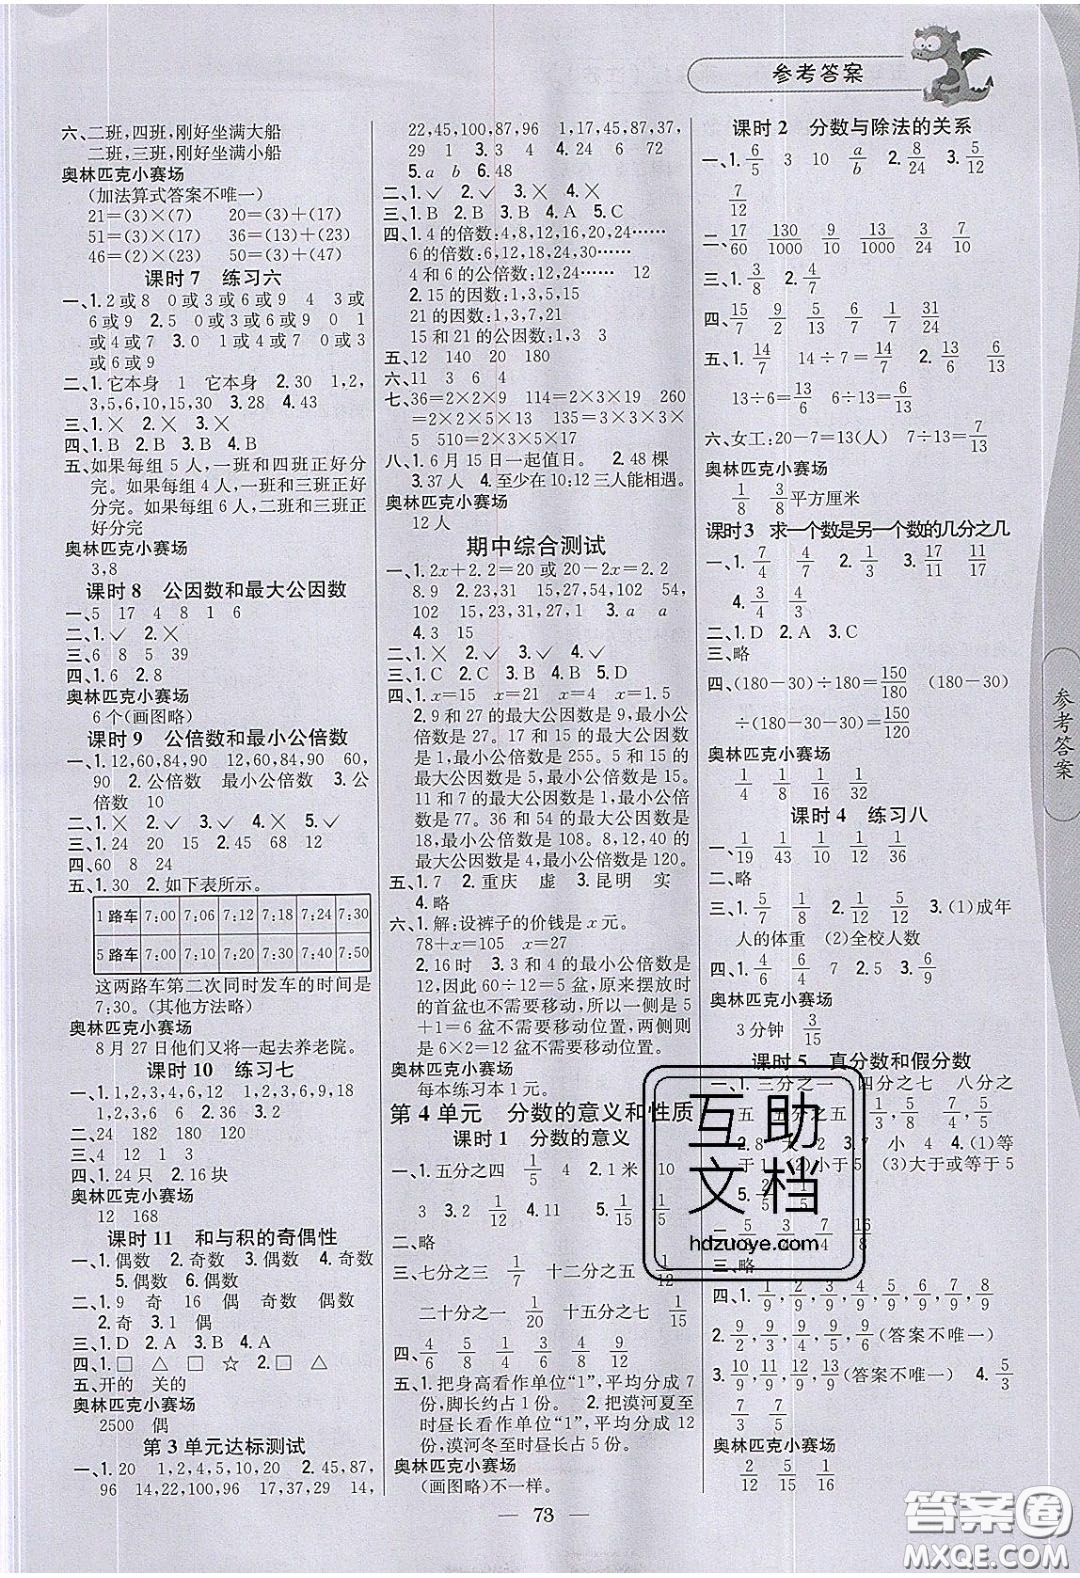 参考答案
六、二班,四班,刚好坐满大船
二班,三班,刚好坐满小船
奥林匹克小赛场
(加法算式答案不唯一)
21=(3)×(7) 20=(3)+(17)
51=(3)×(17) 36=(13)+(23)
46=(2)×(23) 30=(13)+(17)
课时 7 练习六
一、1.2或8 0或3或6或9 4 3或
6或9 2.5 0或3或6或9 0 1
或4或7 3.0 1或4或7 3或
6或9
二、1.它本身 1 它本身 2.30 1,2,
3,5,6,10,15,30 3.28 4.43
三、1.× 2.× 3.×
四、1.B 2.B 3.B 4.B
五、如果每组 5 人,一班和四班正好分
完。如果每组 4 人,一班和三班正好
分完。如果每组 6 人,二班和三班正
好分完
奥林匹克小赛场
3,8
课时 8 公因数和最大公因数
一、5 17 4 8 1 6
二、1.✓ 2.×
三、6 8 5 39
四、1.6 2.8
奥林匹克小赛场
6 个(画图略)
课时 9 公倍数和最小公倍数
一、1.12,60,84,90 12,60,84,90 60,
90 2.公倍数 最小公倍数 3.公
倍数 10
二、1.× 2.✓ 3.✓ 4.×
三、1.24 20 15 68 12
四、60 8 24
五、1.30 2.如下表所示。
1 路车 7:00 7:06 7:12 7:18 7:24 7:30
5 路车 7:00 7:10 7:20 7:30 7:40 7:50
这两路车第二次同时发车的时间是
7:30。(其他方法略)
奥林匹克小赛场
8 月 27 日他们又将一起去养老院。
课时 10 练习七
一、1.1,2,3,4,6,12 1,2,3,6,9,18
1,2,3,6 6 2.1 3.2
二、24 182 180 120
三、4 12 1 3
四、1.24 只 2.16 块
奥林匹克小赛场
12 168
课时 11 和与积的奇偶性
一、1.偶数 2.奇数 3.奇数 4.偶数
5.偶数 6.偶数
二、1.9 奇 16 偶 奇数 偶数
2.奇 3.1 偶
三、1.D 2.A 3.B 4.A
四、1.□ △ □ ☆ 2.□ △
五、开的 关的
奥林匹克小赛场
2500 偶
第 3 单元达标测试
一、1.20 1,2,4,5,10,20 2.45,87,
96 14,22,100,96 17,37,29 14,
22,45,100,87,96 1,17,45,87,37,
29 1 3.4 4.24 96
5.a b 6.48
二、1.✓ 2.✓ 3.× 4.×
三、1.B 2.B 3.B 4.A 5.C
四、1.4 的倍数:4,8,12,16,20,24……
6 的倍数:6,12,18,24,30……
4 和 6 的公倍数:12,24…… 12
2.15 的因数:1,3,5,15
21 的因数:1,3,7,21
15 和 21 的公因数:1,3 3
五、12 140 20 180
六、11 3 6 4
七、36=2×2×9 114=2×3×19 260
=2×2×5×13 135=3×3×3×
5 510=2×3×5×17
八、1.6 月 15 日一起值日。 2.48 棵
3.37 人 4.至少在 10:12 三人能相遇。
奥林匹克小赛场
12 人
期中综合测试
一、1.2x+2.2=20 或 20-2x=2.2
8.9 2.23,31 54,15,102 54,
102 15,23,31,27,1 3.a a
4.3 15
二、1.✓ 2.× 3.✓ 4.× 5.✓
三、1.C 2.C 3.C 4.B 5.D
四、1.x=15 x=21 x=4 x=1.5
2.9 和 27 的最大公因数是 9,最小公
倍数是 27。17 和 15 的最大公因数
是 1,最小公倍数是 255。5 和 15 的
最大公因数是 5,最小公倍数是 15。
11 和 7 的最大公因数是 1,最小公倍
数是 77。36 和 54 的最大公因数是
18,最小公倍数是 108。8,12,40 的
最大公因数是 4,最小公倍数是 120。
五、1.7 2.重庆 虚 3.昆明 实
4.略
六、1.解:设裤子的价钱是 x 元。
78+x=105 x=27
2.16 时 3.3 和 4 的最小公倍数是
12,因此 60÷12=5 盆,原来摆放时
的首盆也不需要移动,所以一侧是 5
+1=6 盆不需要移动位置,两侧则
是 6×2=12 盆不需要移动位置。
奥林匹克小赛场
每本练习本 1 元。
第 4 单元 分数的意义和性质
课时 1 分数的意义
一、1.五分之四 1/5 4 2.1 米 10
3 3.2 1/12 4.11 5.1/15 1/5
二、略
三、七分之三 1/7 十二分之五 1/12
二十分之一 1/20 十五分之七 1/15
四、4/6 5/8 4/6 9/12
五、1.把身高看作单位“1”,平均分成 7
份,脚长约占 1 份。 2.把漠河夏至
昼长时长看作单位“1”,平均分成 12
份,漠河冬至昼长占 5 份。
奥林匹克小赛场
(画图略)不一样。
课时 2 分数与除法的关系
一、1.6/5 3 10 a/b 2.8/24 3.5/12
7/12
二、17/60 130/1000 9/10 8/24
三、1.3/8 2.4/7
四、15/7 9/2 5/6 6/7 1/8 31/24
五、1.14/7 14÷7=14/7 2.13/6 6/13
13÷6=13/6 6÷13=6/13
六、女工:20-7=13(人) 7÷13=7/13
奥林匹克小赛场
1/8 3/8平方厘米
课时 3 求一个数是另一个数的几分之几
一、1.7/4 4/7 2.1/3 3.17/11 11/17
4.3/4 4/3
二、1.D 2.A 3.C
三、略
四、(180-30)÷180=150/180 (180-30)
÷(180-30-30)=150/120
奥林匹克小赛场
1/4 1/4 1/8 1/16 1/16
课时 4 练习八
一、1/19 1/43 1/12 1/12 1/36
二、略
三、1.5/7 1/8 2.1/12 5/12 3.(1)成年
人的体重 (2)全校人数
四、1.4/6 6/4 2.4/9 3.6/9
奥林匹克小赛场
3 分钟 3/15
课时 5 真分数和假分数
一、1.三分之一 四分之七 八分之
五 五分之五 2.8 大 2 3.7 小 4.(1)等
于 1 (2)5 (3)大于或等于 5
三、略
四、1.1/9,2/9,3/9,4/9,5/9,6/9,7/9,8/9
2.9/2,9/3,9/4,9/5(答案不唯一)
3.10/9,11/9,12/9,13/9(答案不唯一) 4.5/3
7/3 7/5
奥林匹克小赛场
2/12 5/15 1/15 2/5
参考答案
互助
文档
hdzuoye.com
答案圈
MXQE.COM
73